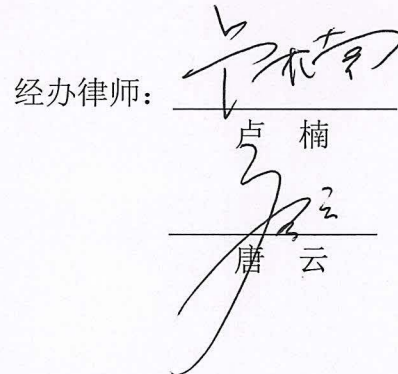 经办律师：卢楠
卢 楠
唐云
唐 云